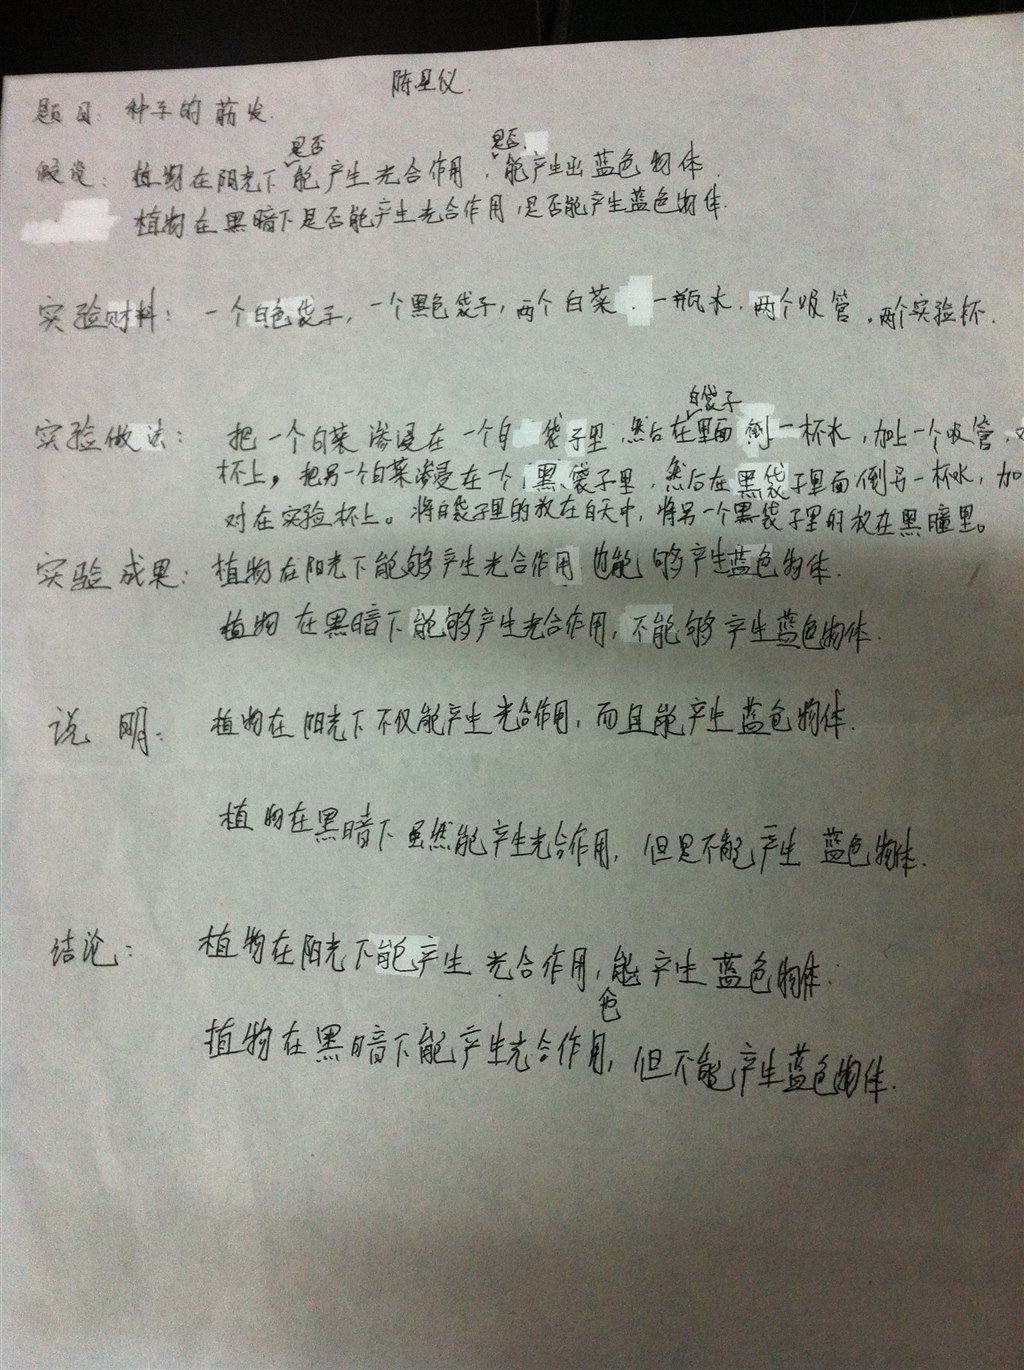 陈星仪.
题目: 种子的萌发.
假设: 植物在阳光下是否能产生光合作用,是否能产生出蓝色物体.
植物在黑暗下是否能产生光合作用,是否能产生蓝色物体.
实验材料: 一个白色袋子,一个黑色袋子,两个白菜.一瓶水.两个吸管.两个实验杯.
实验做法: 把一个白菜渗浸在一个白袋子里,然后在白袋子里面倒一杯水,加上一个吸管,
杯上,把另一个白菜渗浸在一个黑袋子里,然后在黑袋子里面倒另一杯水,加
对在实验杯上。将白袋子里的放在白天中,将另一个黑袋子里的放在黑瞳里。
实验成果: 植物在阳光下能够产生光合作用也能够产生蓝色物体.
植物在黑暗下能够产生光合作用,不能够产生蓝色物体.
说明: 植物在阳光下不仅能产生光合作用,而且能产生蓝色物体.
植物在黑暗下虽然能产生光合作用,但是不能产生蓝色物体.
结论: 植物在阳光下能产生光合作用,能产生蓝色物体.
植物在黑暗下能产生光合作用,但不能产生蓝色物体.